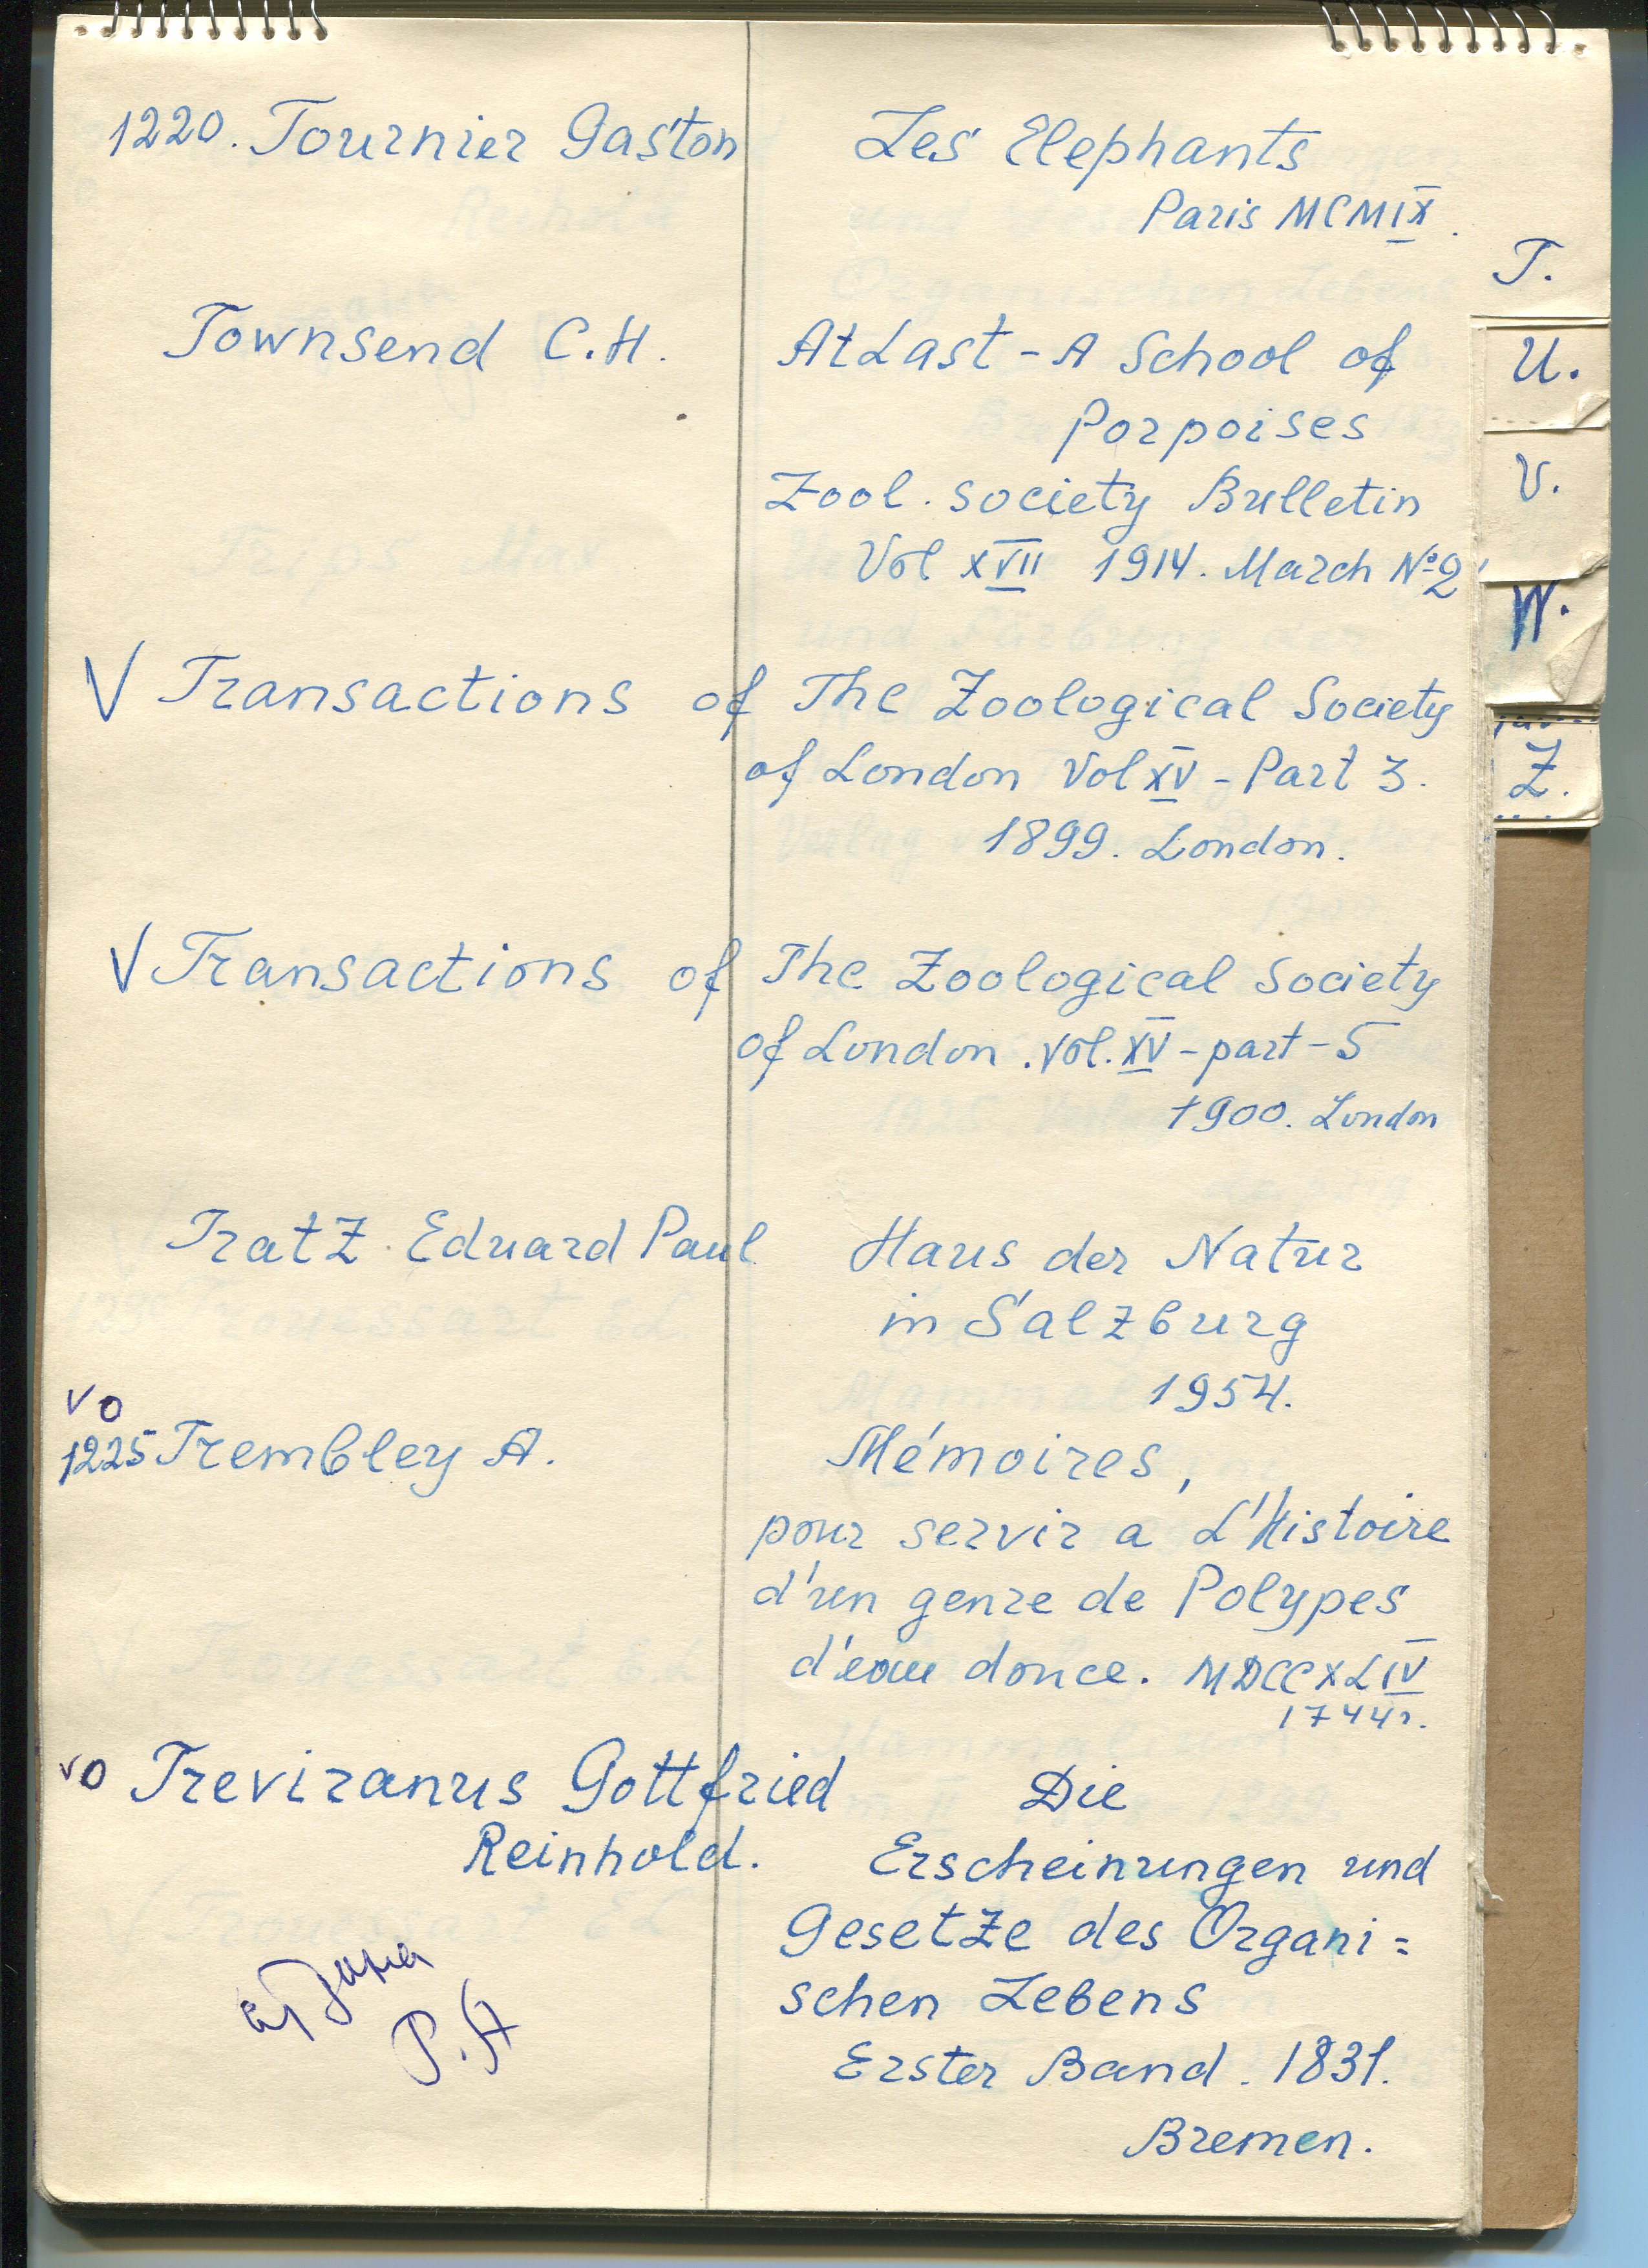 1220. Tournier Gaston Les Elephants
Paris MCMIX.
T.
Townsend C.H. At Last - A School of
Porpoises
U.
Zool. society Bulletin
V.
Vol XVII 1914. March №2
W.
V Transactions of The Zoological Society
of London Vol XV - Part 3.
Z.
1899. London.
V Transactions of The Zoological Society
of London. Vol. XV - part - 5
1900. London
Tratz Eduard Paul Haus der Natur
in Salzburg
1954.
V O
1225 Trembley A. Mémoires,
pour servir a L'Histoire
d'un genre de Polypes
d'eau douce. MDCCXLIV
1744г.
VO Treviranus Gottfried Die
Reinhold. Erscheinungen und
Gesetze des Organi=
schen Lebens
Erster Band. 1831.
Bremen.
Р.А